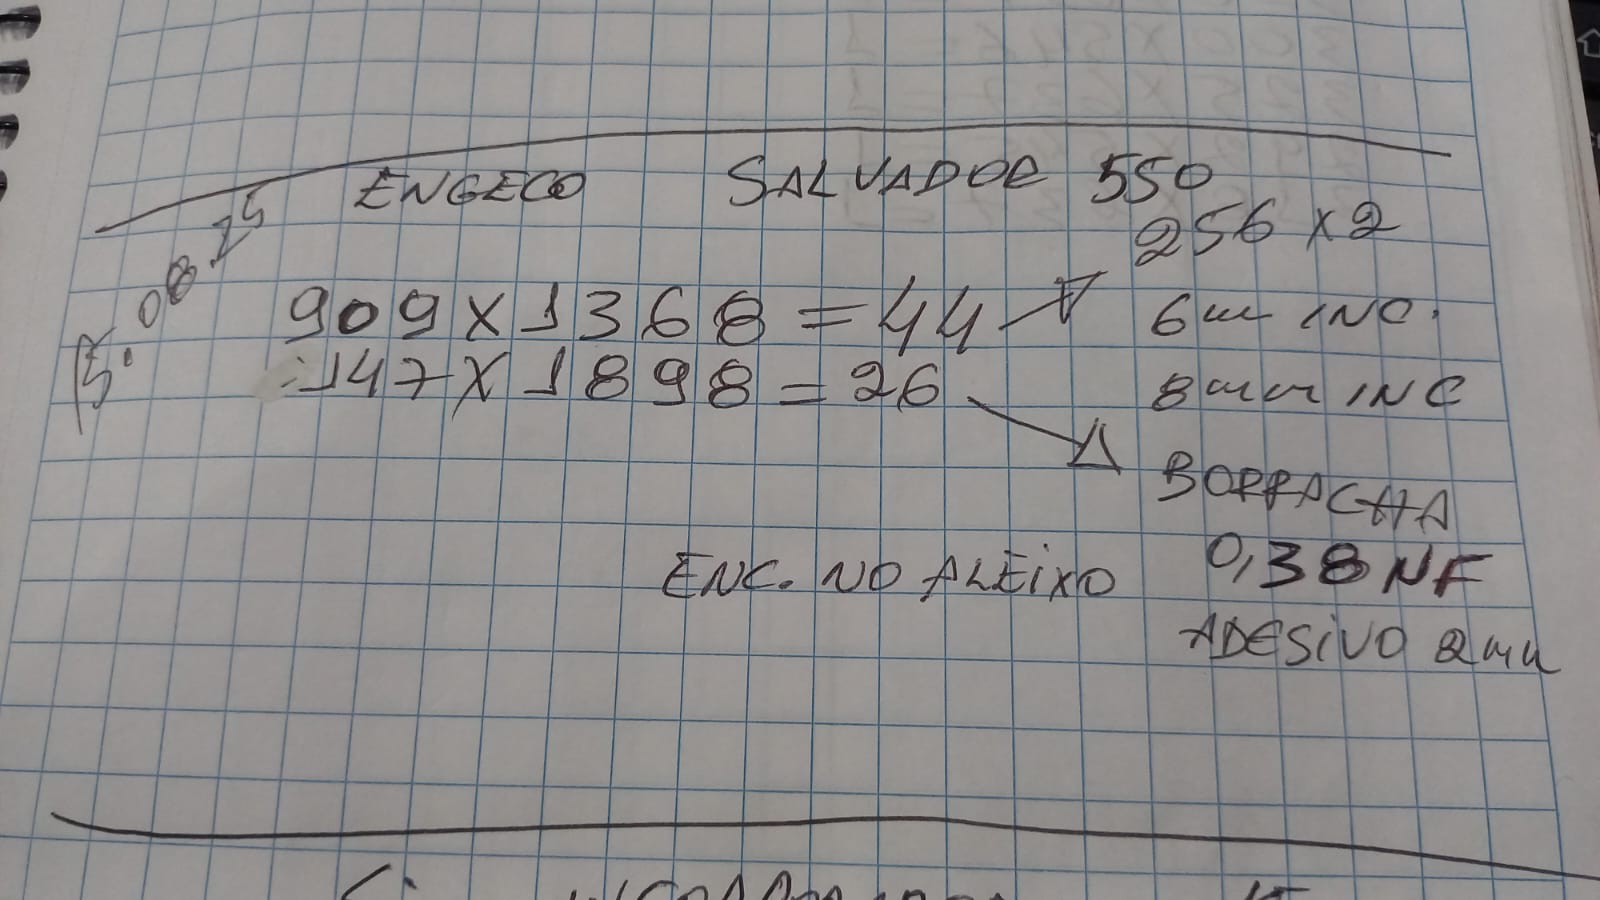 ENGECO SALVADOR 550
256 x 2
15.08.25
909 X 1368 = 44 6mm INC.
1147 X 1898 = 26 8mm INC
BORRACHA
ENC. NO ALEIXO 0,38 NF
ADESIVO 2mm